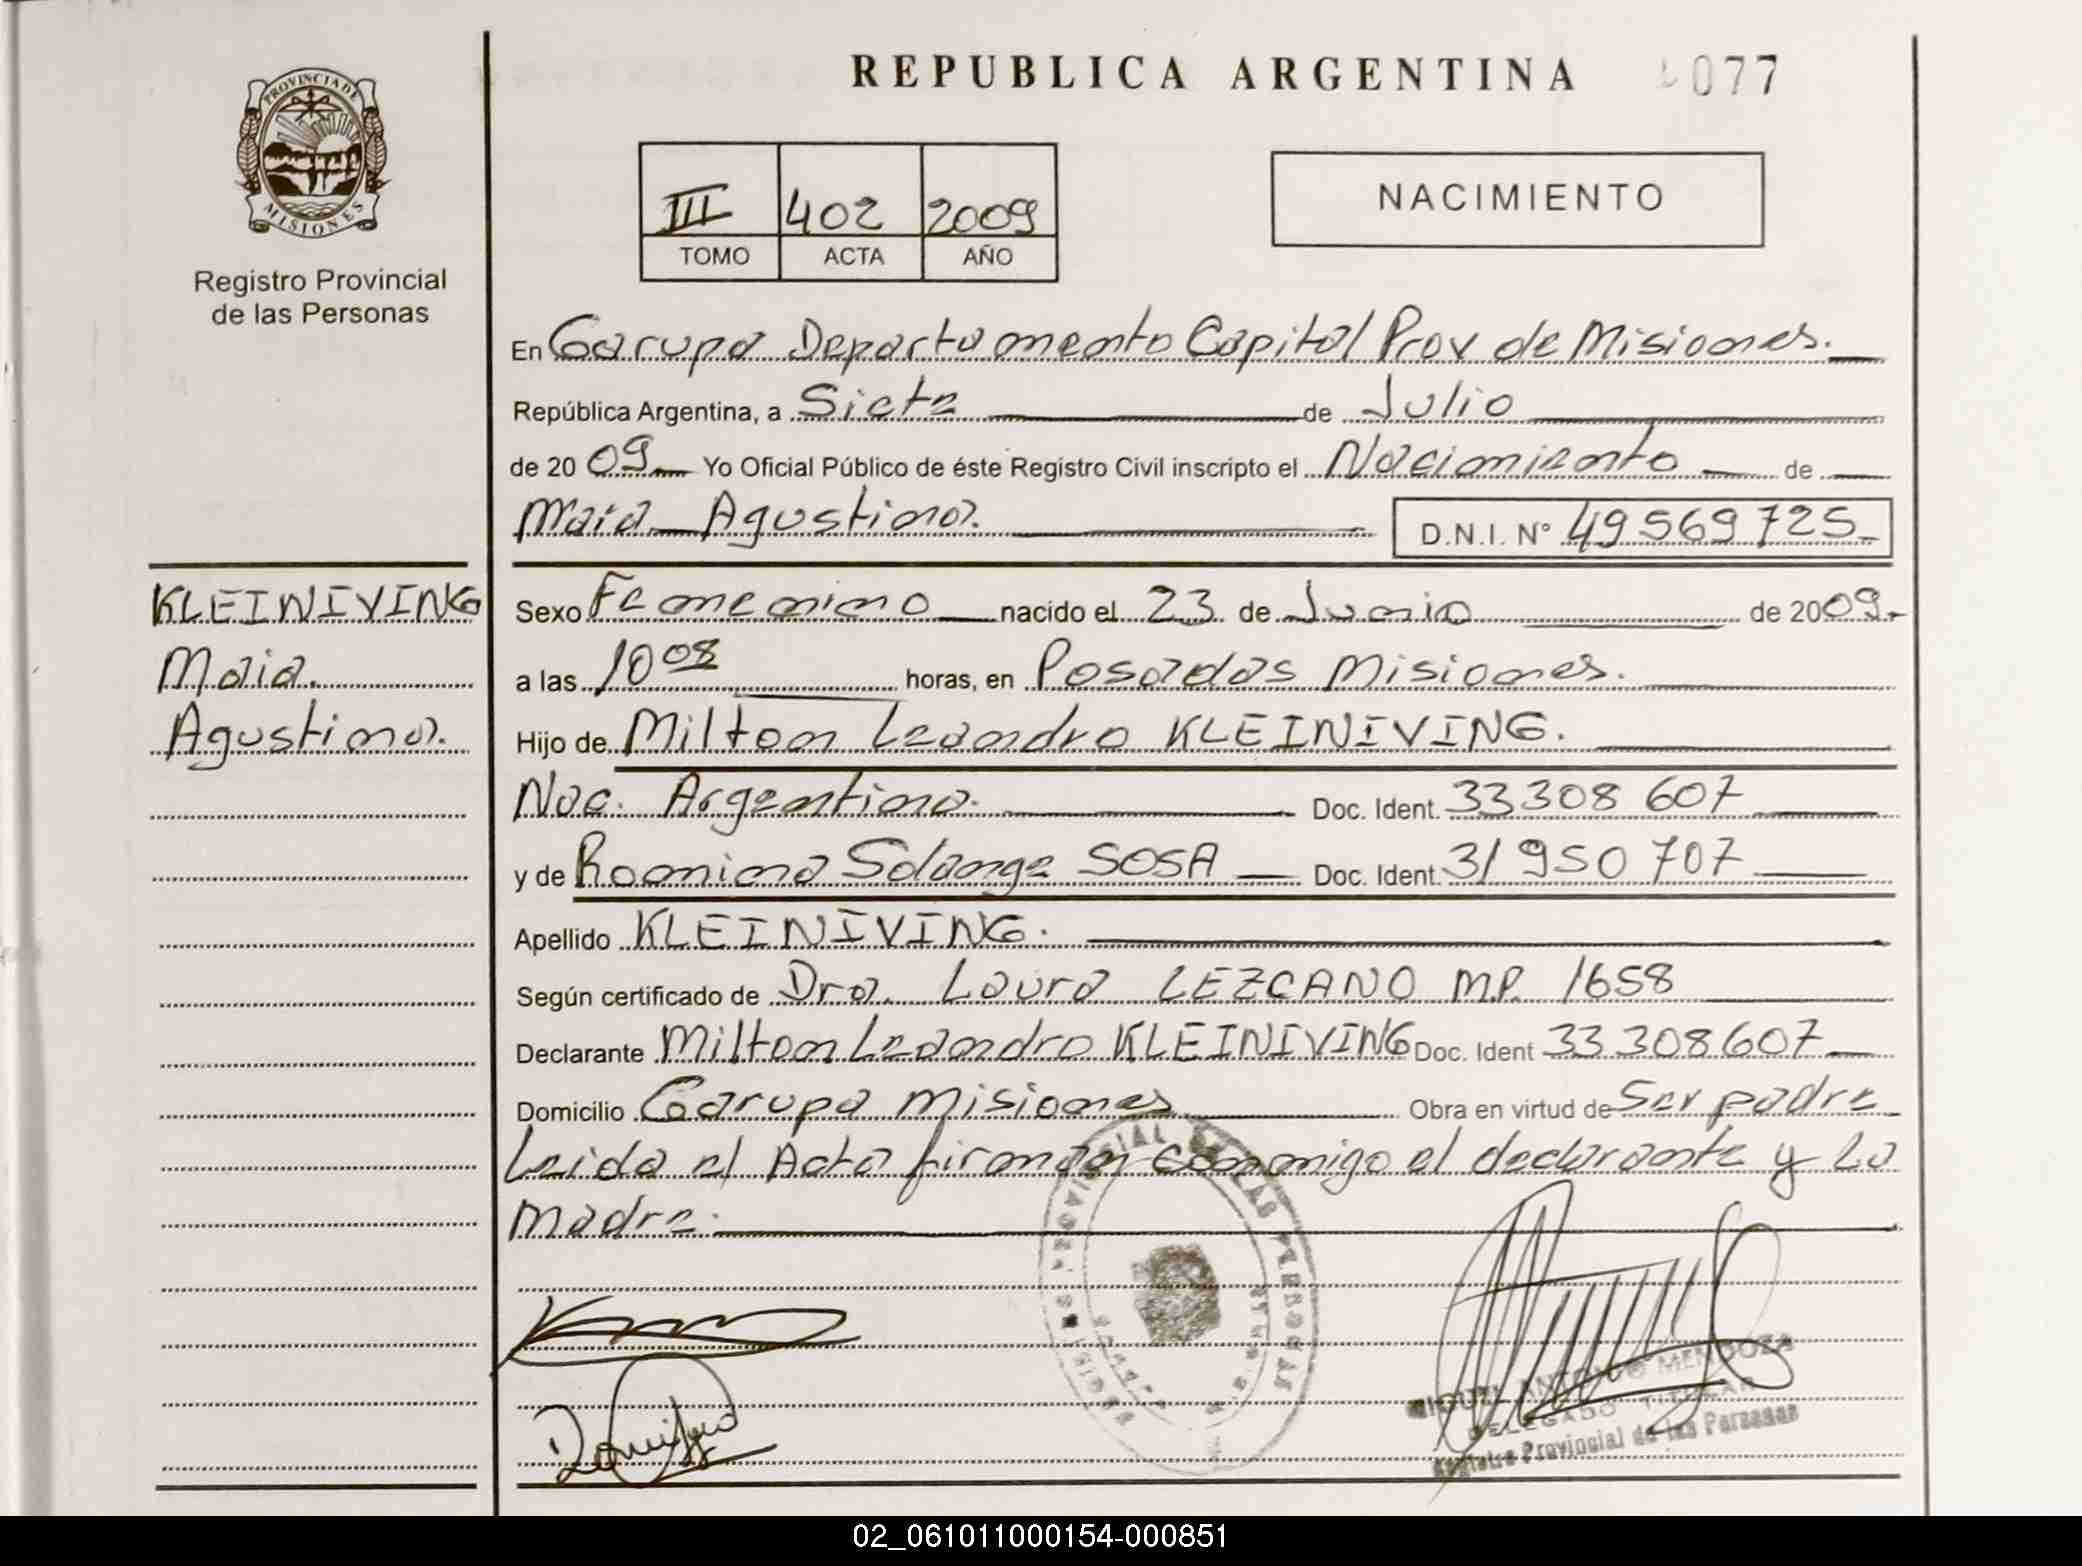 REPUBLICA ARGENTINA 077
PROVINCIA DE
MISIONES
Registro Provincial
de las Personas
NACIMIENTO
III 402 2009
TOMO ACTA AÑO
En Garupa Departamento Capital Prov de Misiones.
República Argentina, a Siete de Julio
de 20 09 Yo Oficial Público de éste Registro Civil inscripto el Nacimiento de
Maia Agustina. D.N.I. Nº 49569725
KLEINIVING
Maia.
Agustina.
Sexo Femenino nacido el 23 de Junio de 2009.
a las 10 08 horas, en Posadas Misiones.
Hijo de Milton Leandro KLEINIVING.
Nac. Argentina. Doc. Ident. 33308 607
y de Romina Solange SOSA Doc. Ident. 31 950 707
Apellido KLEINIVING.
Según certificado de Dra. Laura LEZCANO M.P. 1658
Declarante Milton Leandro KLEINIVING Doc. Ident 33 308 607
Domicilio Garupa Misiones Obra en virtud de Ser padre
Leida el Acta firman conmigo el declarante y La
Madre.
MIGUEL ANTONIO MENDOZA
DELEGADO TITULAR
Registro Provincial de las Personas
02_061011000154-000851